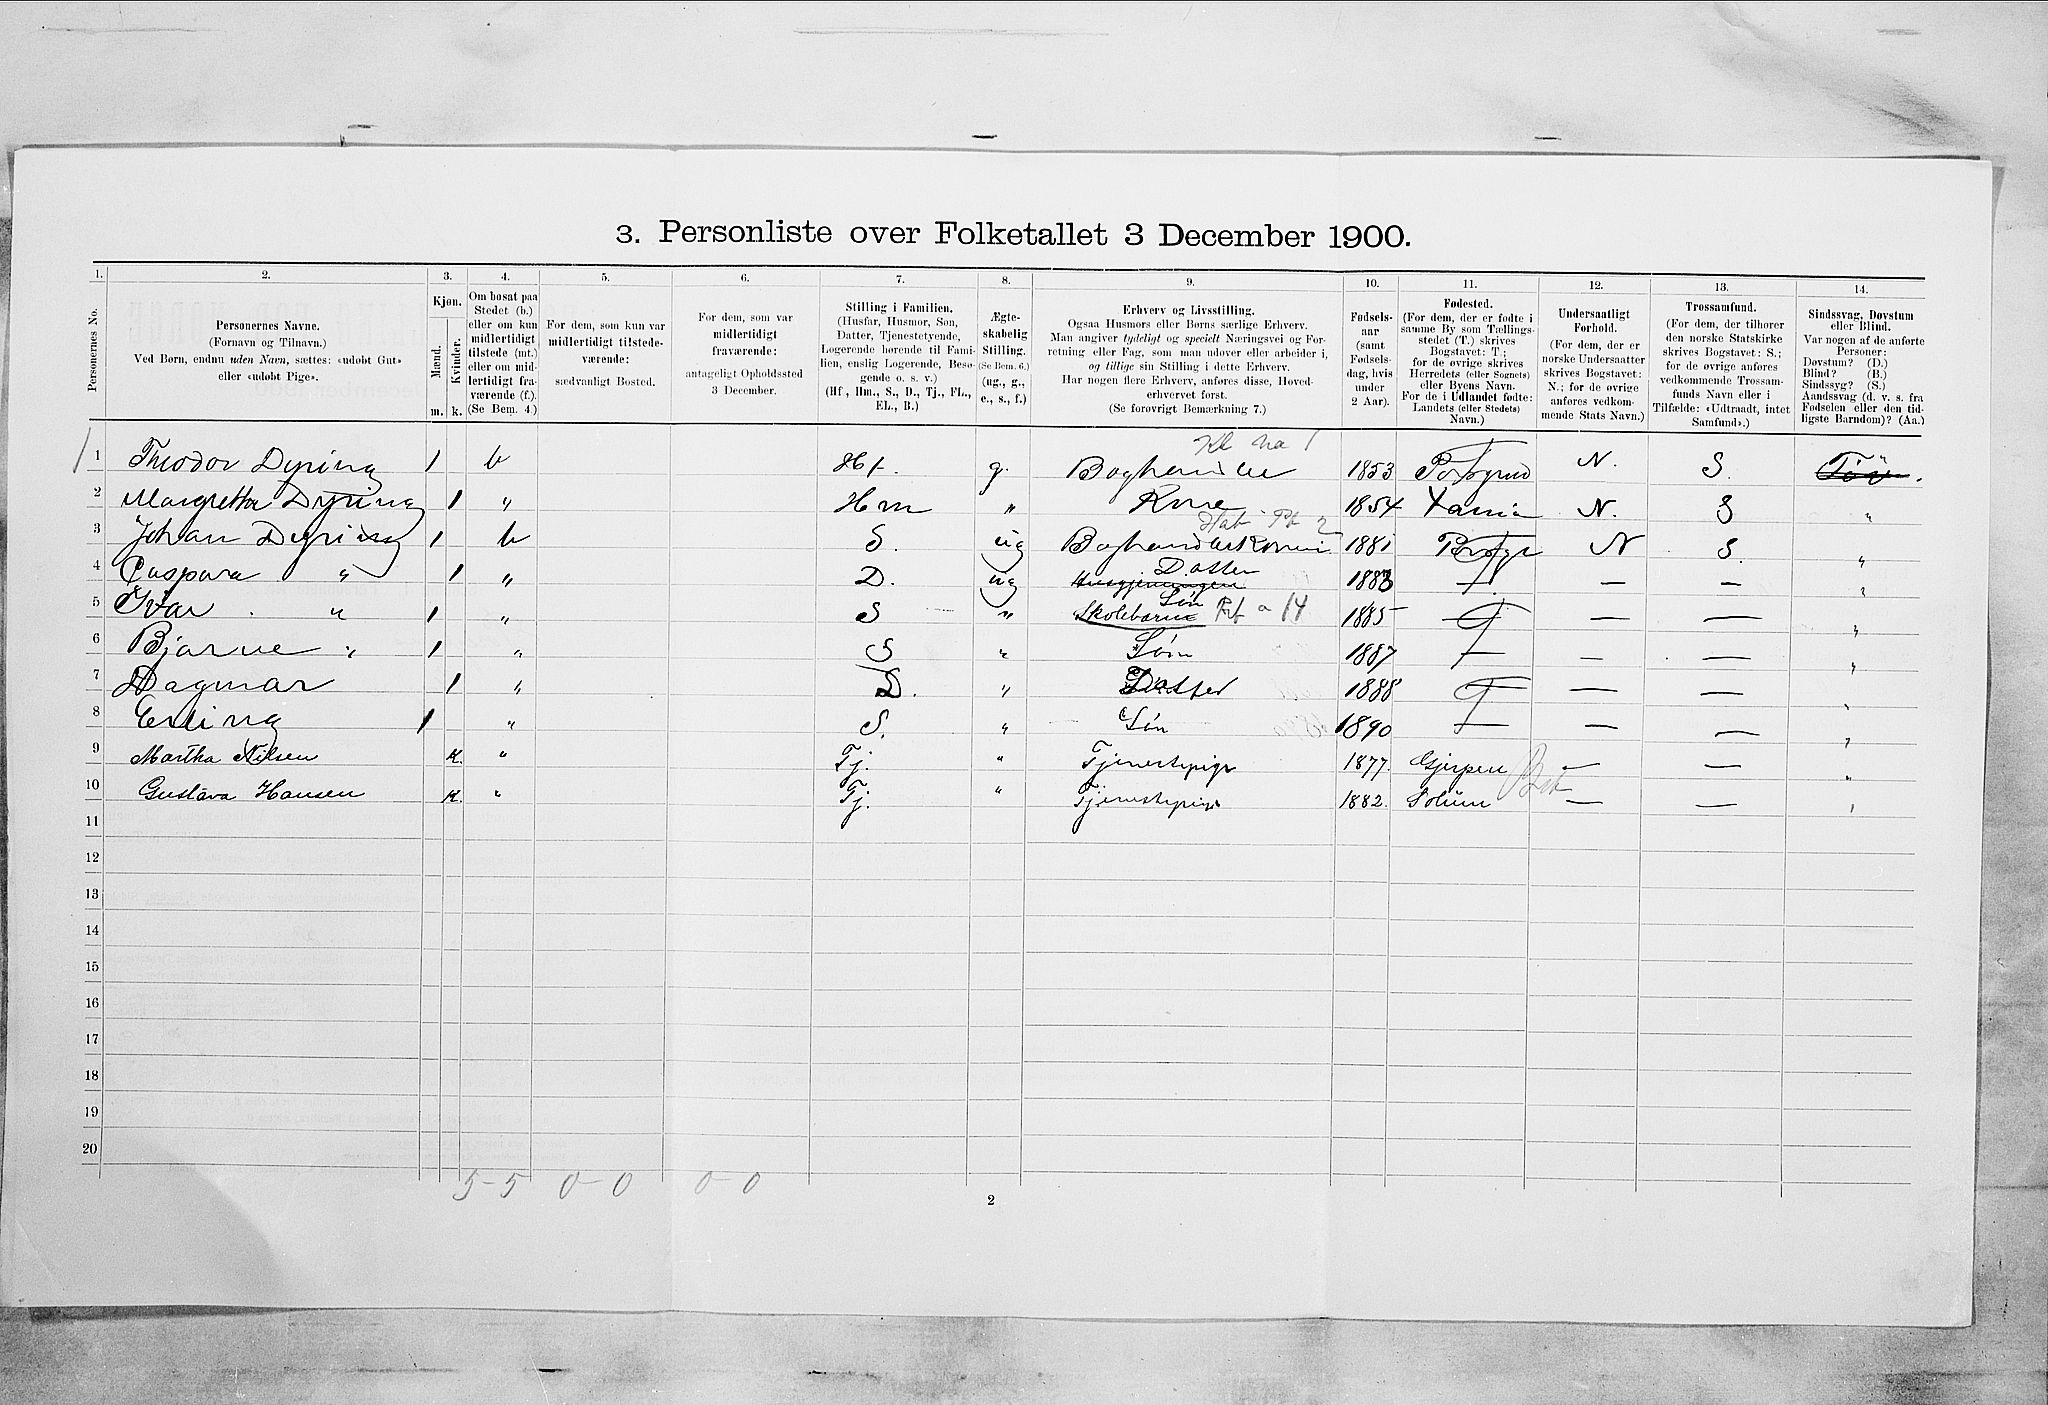 3. Personliste over Folketallet 3 December 1900.
1. 2. 3. 4. 5. 6. 7. 8. 9. 10. 11. 12. 13. 14.
Personernes No.
Personernes Navne.
(Fornavn og Tilnavn.)
Ved Børn, endnu uden Navn, sættes: «udøbt Gut»
eller «udøbt Pige».
Kjøn.
Mænd.
Kvinder.
m. k.
Om bosat paa
Stedet (b.)
eller om kun
midlertidigt
tilstede (mt.)
eller om mid-
lertidigt fra-
værende (f.).
(Se Bem. 4.)
For dem, som kun var
midlertidigt tilstede-
værende:
sædvanligt Bosted.
For dem, som var
midlertidigt
fraværende:
antageligt Opholdssted
3 December.
Stilling i Familien.
(Husfar, Husmor, Søn,
Datter, Tjenestetyende,
Logerende hørende til Fami-
lien, enslig Logerende, Besø-
gende o. s. v.)
(Hf., Hm., S., D., Tj., FL.,
EL., B.)
Ægte-
skabelig
Stilling.
(Se Bem. 6.)
(ug., g.,
e., s., f.)
Erhverv og Livsstilling.
Ogsaa Husmors eller Børns særlige Erhverv.
Man angiver tydeligt og specielt Næringsvei og For-
retning eller Fag, som man udøver eller arbeider i,
og tillige sin Stilling i dette Erhverv.
Har nogen flere Erhverv, anføres disse, Hoved-
erhvervet først.
(Se forøvrigt Bemærkning 7.)
Fødsels-
aar
(samt
Fødsels-
dag, hvis
under
2 Aar).
Fødested.
(For dem, der er fødte i
samme By som Tællings-
stedet (T.) skrives
Bogstavet: T.;
for de øvrige skrives
Herredets (eller Sognets)
eller Byens Navn.
For de i Udlandet fødte:
Landets (eller Stedets)
Navn.)
Undersaatligt
Forhold.
(For dem, der er
norske Undersaatter
skrives Bogstavet:
N.; for de øvrige
anføres vedkom-
mende Stats Navn.)
Trossamfund.
(For dem, der tilhører
den norske Statskirke
skrives Bogstavet: S.;
for de øvrige anføres
vedkommende Trossam-
funds Navn eller i
Tilfælde: «Udtraadt, intet
Samfund».)
Sindssvag, Døvstum
eller Blind.
Var nogen af de anførte
Personer:
Døvstum? (D.)
Blind? (B.)
Sindssyg? (S.)
Aandssvag (d. v. s. fra
Fødselen eller den tid-
ligste Barndom)? (Aa.)
1 Theodor Dyring 1 b Hf. g. Boghandler 1853 Porsgrund N. S.
2 Margretta Dyring 1 " Hm " Kone 1854 Xania N. S "
3 Johan Dyring 1 b S. ug 1881 Porsgr N S. "
4 Caspara " 1 " D. ug Husgjerningen Datter 1883 — — — "
5 Ivar " 1 " S " Skolebarn Søn 1885 — — — "
6 Bjarne " 1 " S " Søn 1887 — — — "
7 Dagmar 1 " D. " Datter 1888 — — — "
8 Erling 1 " S. " Søn 1890 — — — "
9 Martha Nilsen K. " Tj. " Tjenestepige 1877. Gjerpen — — "
10 Gustava Hansen K. " Tj. " Tjenestepige 1882. Solum — — "
11
12
13
14
15
16
17
18
19
20
5-5 0-0 0-0
2